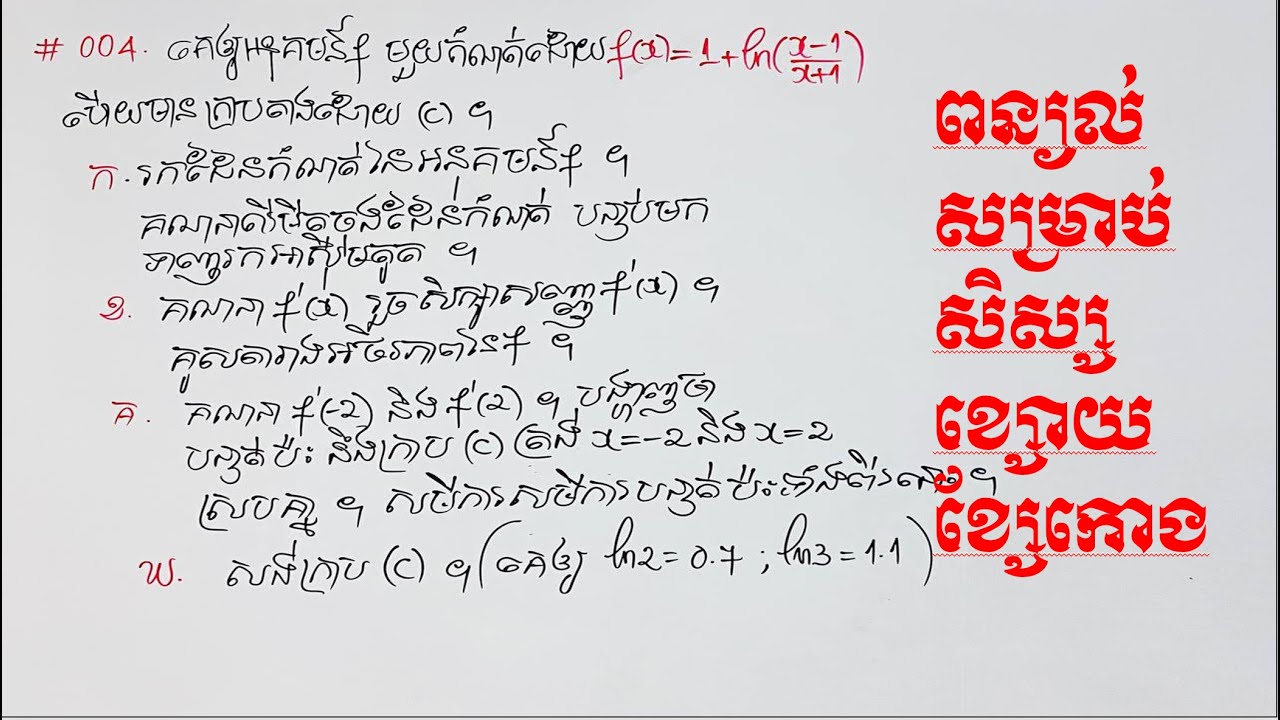 # 004. គេឲ្យអនុគមន៍ f មួយកំណត់ដោយ f(x) = 1 + ln(\frac{x-1}{x+1})
ហើយមានក្រាបតាងដោយ (C) ។
ក. រកដែនកំណត់នៃអនុគមន៍ f ។
គណនាលីមីតចុងដែនកំណត់ បន្ទាប់មក
ទាញរកអាស៊ីមតូត ។
ខ. គណនា f'(x) រួចសិក្សាសញ្ញា f'(x) ។
គូសតារាងអថេរភាពនៃ f ។
គ. គណនា f'(-2) និង f'(2) ។ បង្ហាញថា
បន្ទាត់ប៉ះ នឹងក្រាប (C) ត្រង់ x=-2 និង x=2
ស្របគ្នា ។ សមីការសមីការបន្ទាត់ប៉ះទាំងពីរនោះ ។
ឃ. សង់ក្រាប (C) ។ (គេឲ្យ ln2 = 0.7 ; ln3 = 1.1)
ពន្យល់
សម្រាប់
សិស្ស
ខ្សោយ
ខ្សែកោង